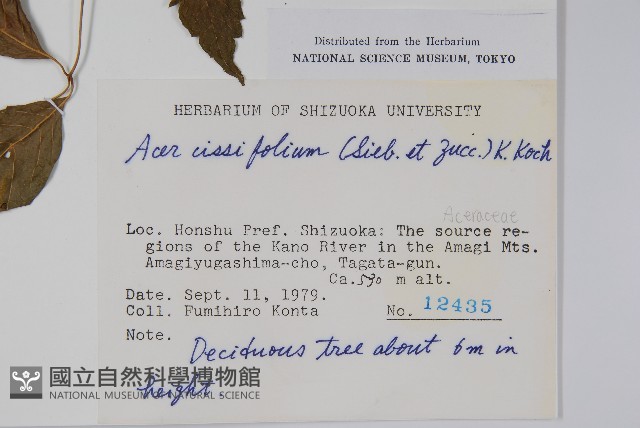 Distributed from the Herbarium
NATIONAL SCIENCE MUSEUM, TOKYO
HERBARIUM OF SHIZUOKA UNIVERSITY
Acer cissifolium (Sieb. et Zucc.) K. Koch
Aceraceae
Loc. Honshu Pref. Shizuoka: The source re-
gions of the Kano River in the Amagi Mts.
Amagiyugashima-cho, Tagata-gun.
Ca. 590 m alt.
Date. Sept. 11, 1979.
Coll. Fumihiro Konta No. 12435
Note.
Deciduous tree about 6m in
height.
國立自然科學博物館
NATIONAL MUSEUM OF NATURAL SCIENCE